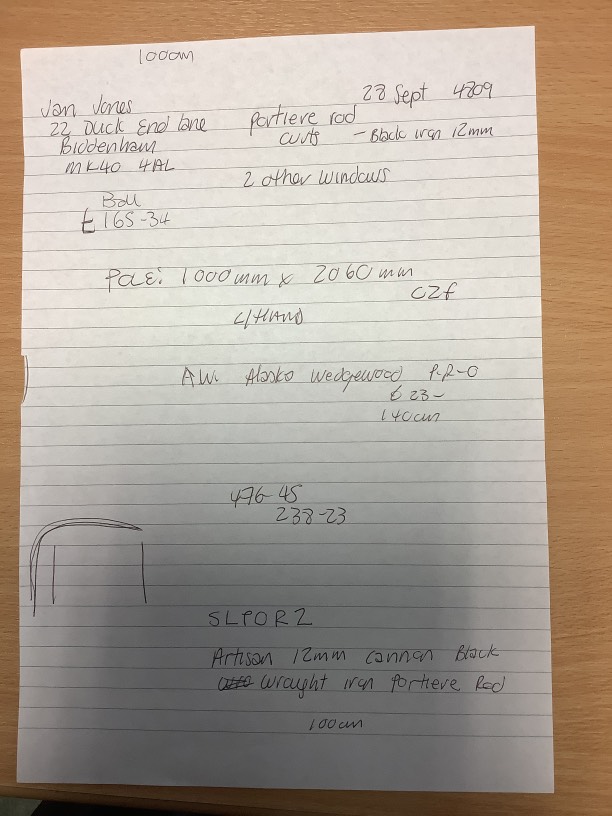 1000m
28 Sept 4809
Jan Jones
22 Duck End Lane
Biddenham
MK40 4AL
Portiere rod
curts - Black iron 12mm
2 other windows
Bal
£165-34
Pole: 1000mm x 2060mm
CZf
C/HAND
AW. Alasko Wedgewood P-R-O
£23-
140cm
476-45
238-23
SLPOR2
Artisan 12mm cannon Black
wrought iron Portieve Rod
100cm